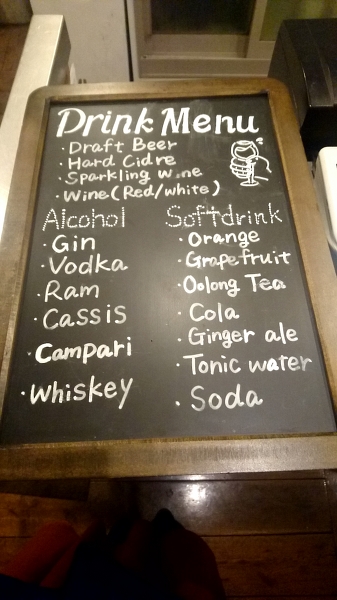 Drink Menu
・Draft Beer
・Hard Cidre
・Sparkling wine
・Wine (Red/white)
Alcohol
・Gin
・Vodka
・Ram
・Cassis
・Campari
・Whiskey
Softdrink
・Orange
・Grapefruit
・Oolong Tea
・Cola
・Ginger ale
・Tonic water
・Soda